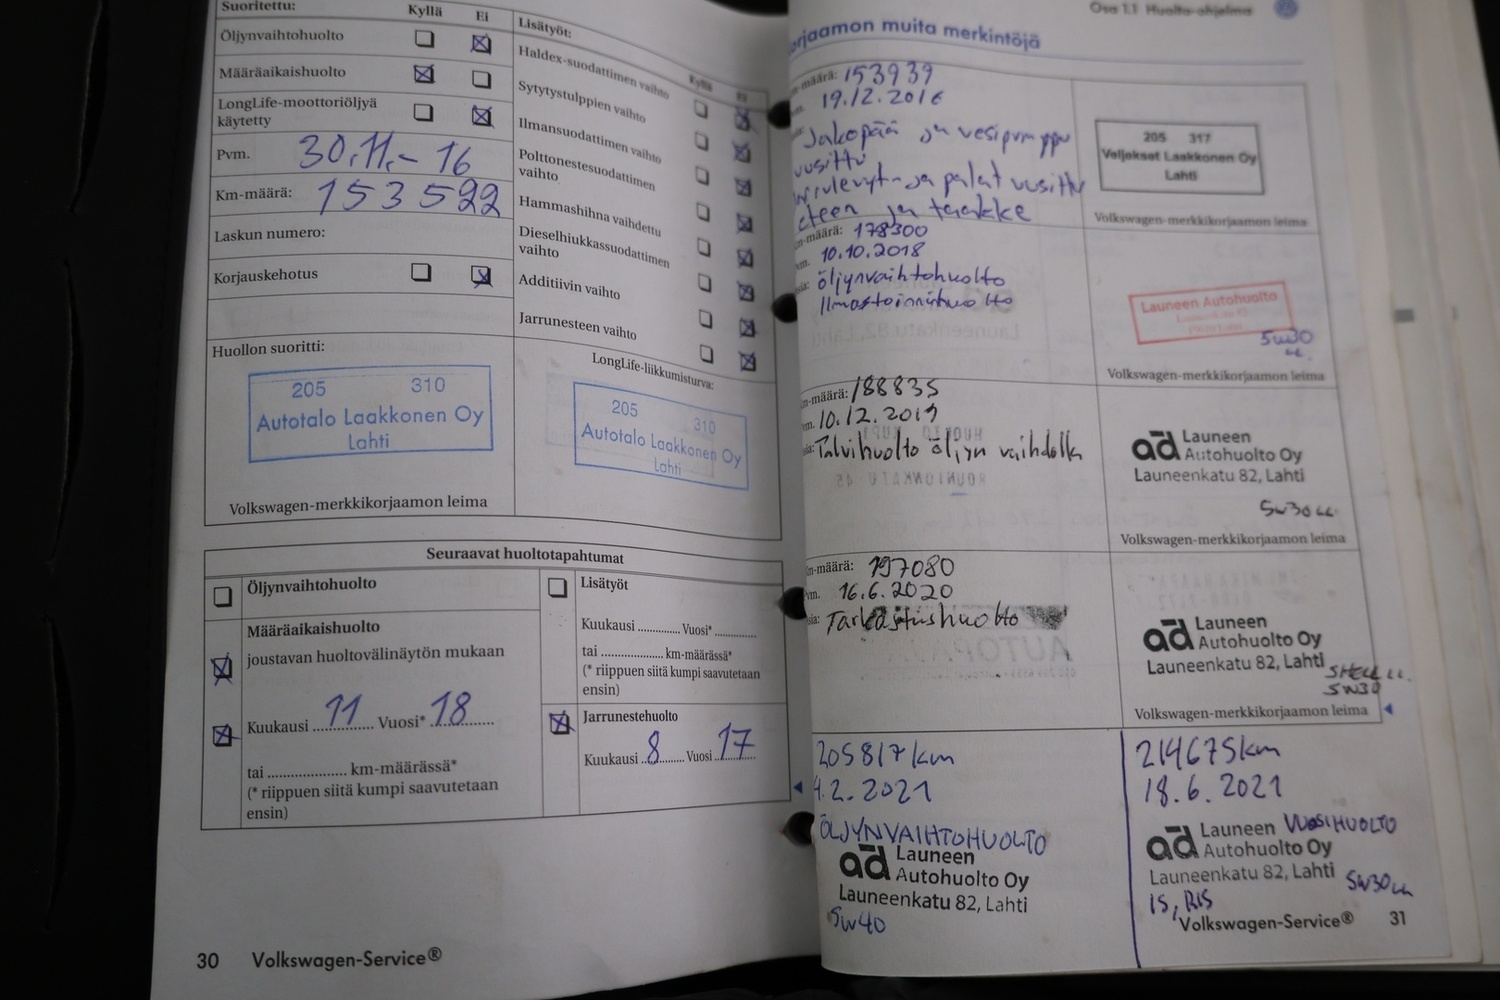 Suoritettu: Kyllä Ei
Öljynvaihtohuolto
Määräaikaishuolto
LongLife-moottoriöljyä
käytetty
Pvm. 30.11.-16
Km-määrä: 153522
Laskun numero:
Korjauskehotus
Huollon suoritti:
205 310
Autotalo Laakkonen Oy
Lahti
Volkswagen-merkkikorjaamon leima
Lisätyöt:
Kyllä Ei
Haldex-suodattimen vaihto
Sytytystulppien vaihto
Ilmansuodattimen vaihto
Polttonestesuodattimen
vaihto
Hammashihna vaihdettu
Dieselhiukkassuodattimen
vaihto
Additiivin vaihto
Jarrunesteen vaihto
LongLife-liikkumisturva:
205 310
Autotalo Laakkonen Oy
Lahti
Seuraavat huoltotapahtumat
Öljynvaihtohuolto
Määräaikaishuolto
joustavan huoltovälinäytön mukaan
Kuukausi 11 Vuosi* 18
tai .................... km-määrässä*
(* riippuen siitä kumpi saavutetaan
ensin)
Lisätyöt
Kuukausi ............ Vuosi* ............
tai .................. km-määrässä*
(* riippuen siitä kumpi saavutetaan
ensin)
Jarrunestehuolto
Kuukausi 8 Vuosi 17
30 Volkswagen-Service®
Osa 1.1 Huolto-ohjelma
orjaamon muita merkintöjä
m-määrä: 153939
19.12.2016
Jakopää ja vesipumppu
uusittu
ja palat uusittu
eteen ja taakke
205 317
Veljekset Laakkonen Oy
Lahti
Volkswagen-merkkikorjaamon leima
m-määrä: 178300
vm. 10.10.2018
öljynvaihtohuolto
Ilmastointihuolto
Launeen Autohuolto
5w30
LL
Volkswagen-merkkikorjaamon leima
m-määrä: 188835
vm. 10.12.2019
Talvihuolto öljyn vaihdolla
ad Launeen
Autohuolto Oy
Launeenkatu 82, Lahti
5w30 LL
Volkswagen-merkkikorjaamon leima
m-määrä: 197080
vm. 16.6.2020
Tarkastushuolto
ad Launeen
Autohuolto Oy
Launeenkatu 82, Lahti
SHELL LL
5W30
Volkswagen-merkkikorjaamon leima
205817km
4.2.2021
ÖLJYNVAIHTOHUOLTO
ad Launeen
Autohuolto Oy
Launeenkatu 82, Lahti
5w40
214675km
18.6.2021
ad Launeen VUOSIHUOLTO
Autohuolto Oy
Launeenkatu 82, Lahti 5W30 LL
Volkswagen-Service® 31